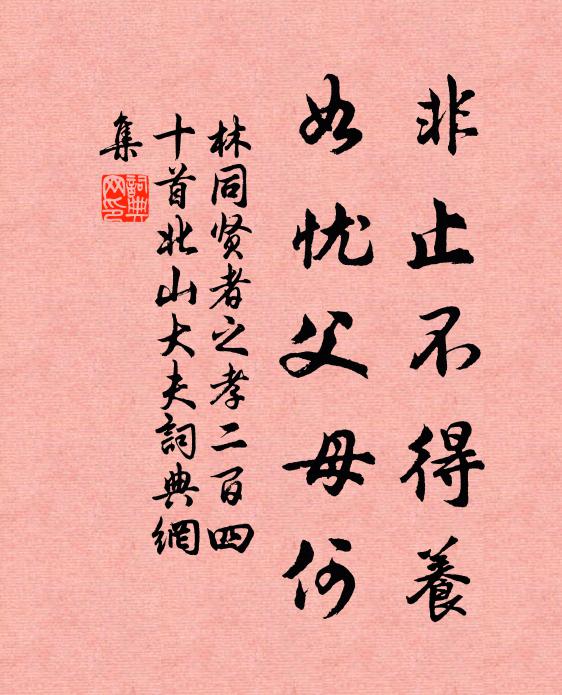 非止不得養
如忧父母何
林同贤者之孝二百四
十首北山大夫詞典網
集
詞典
网印